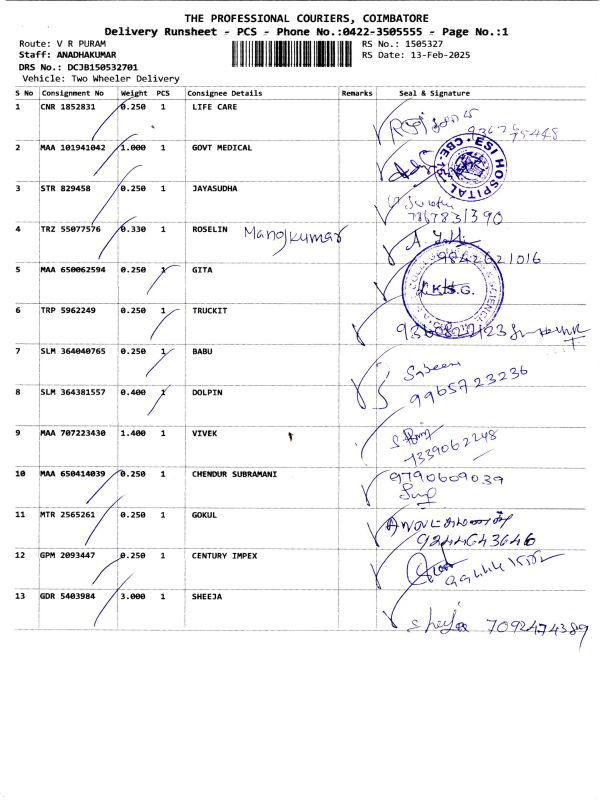 THE PROFESSIONAL COURIERS, COIMBATORE
Delivery Runsheet - PCS - Phone No.:0422-3505555 - Page No.:1
Route: V R PURAM
RS No.: 1505327
Staff: ANADHAKUMAR
RS Date: 13-Feb-2025
DRS No.: DCJB150532701
Vehicle: Two Wheeler Delivery
S No Consignment No Weight PCS Consignee Details Remarks Seal & Signature
1 CNR 1852831 0.250 1 LIFE CARE
2 MAA 101941042 1.000 1 GOVT MEDICAL
ESI HOSPITAL
3 STR 829458 0.250 1 JAYASUDHA
7867831390
4 TRZ 55077576 0.330 1 ROSELIN Manojkumar
9842621016
5 MAA 650062594 0.250 1 GITA
6 TRP 5962249 0.250 1 TRUCKIT
7 SLM 364040765 0.250 1 BABU
9965723236
8 SLM 364381557 0.400 1 DOLPIN
9 MAA 707223430 1.400 1 VIVEK
7339062248
10 MAA 650414039 0.250 1 CHENDUR SUBRAMANI
9790609039
11 MTR 2565261 0.250 1 GOKUL
9244643646
12 GPM 2093447 0.250 1 CENTURY IMPEX
13 GDR 5403984 3.000 1 SHEEJA
Sheeja 7092474389